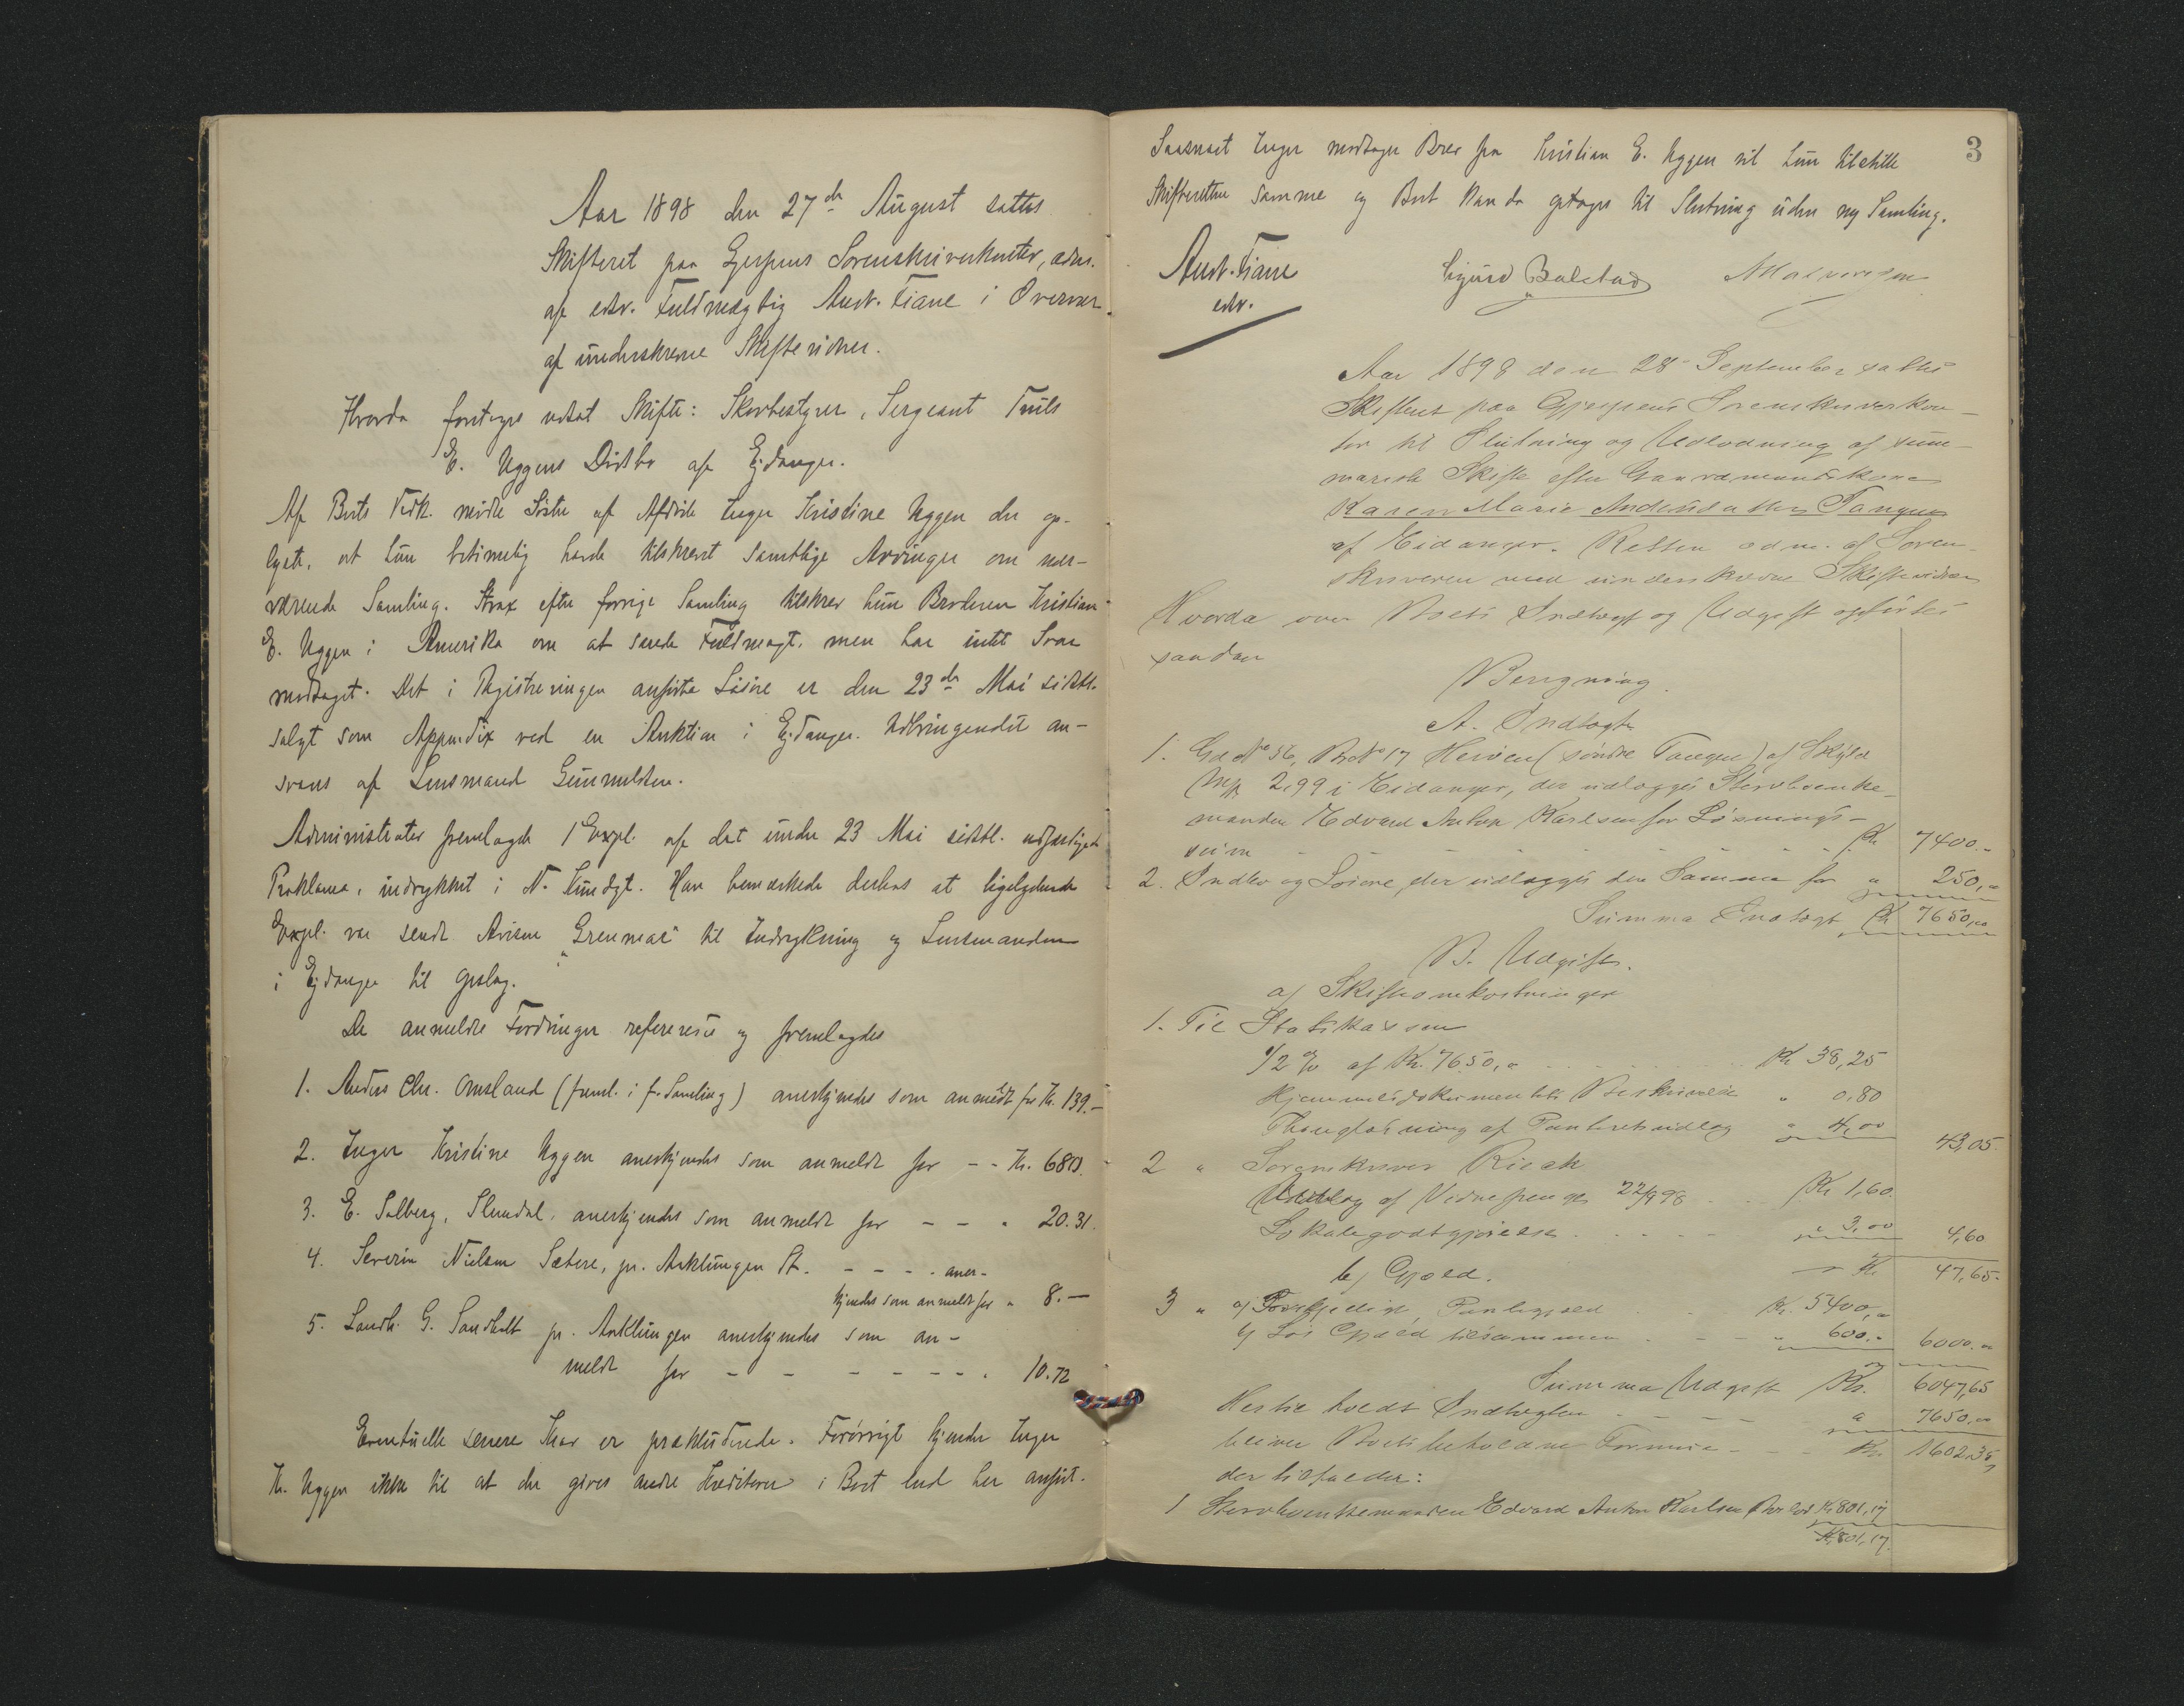 Aar 1898 den 27de August sattes
Skifteret paa Gjerpens Sorenskriverkontor, adm.
af edsv. Fuldmægtig Aust. Tiane i Overvær
af underskrevne Skiftevidner.
Hvorda foretoges udsat Skifte: Skovbestyrer, Sergeant Truls
E. Uggens Dødsbo af Ejdanger.
Af Boets Vedk. mødte Søster af Afdøde Inger Kristine Uggen der op-
lyste, at hun betimelig havde tilskrevet samtlige Arvinger om nær-
værende Samling. Strax efter forrige Samling tilskrev hun Broderen Kristian
E. Uggen i Amerika om at sende Fuldmagt, men har intet Svar
modtaget. Det i Registreringen anførte Løsøre er den 23de Mai sidstl.
solgt som Appendix ved en Auktion i Ejdanger. Udbringendet an-
svares af Lensmand Gunnulsen.
Administrator fremlagde 1 Expl. af det under 23 Mai sidstl. udfærdigede
Proklama, indrykket i N. Kundgt. Han bemærkede derhos at ligelydende
Expl. var sendt Avisen "Grenmar" til Indrykning og Lensmanden
i Ejdanger til Opslag.
De anmeldte Fordringer refereredes og fremlagdes
1. Anders Chr. Omsland (freml. i f. Samling) anerkjendes som anmeldt for Kr. 139.-
2. Inger Kristine Uggen anerkjendes som anmeldt for - - Kr. 680.
3. E. Solberg, Slemdal, anerkjendes som anmeldt for - - " 20.31.
4. Severin Nielsen Sætere, pr. Aaklungen St. - - - - aner-
kjendes som anmeldt for " 8.-
5. Landh. G. Sandholt pr. Aaklungen anerkjendes som an-
meldt for - - - - - - - 10.72
Eventuelle senere Krav er præcluderede. Forøvrigt kjender Inger
K. Uggen ikke til at der gives andre Kreditorer i Boet end her anført.
3
Saasnart Inger modtager Brev fra Kristian E. Uggen vil hun tilstille
Skifteretten samme og Boet kan da optages til Slutning uden ny Samling.
Aust. Tiane
edsv.
Sigurd Bolstad
Aar 1898 den 28 September sattes
Skifteret paa Gjerpens Sorenskriverkon-
tor til Slutning og Udlodning af sum-
marisk Skifte efter Gaardmandskone
Karen Marie Andersdatter Tangen
af Eidanger. Retten adm. af Soren-
skriveren med underskrevne Skiftevidner
Hvorda over Boets Indtægt og Udgift opførtes
saadan
Beregning.
A. Indtægt
1. Gd. No 56, Br. No 17 Heivien (søndre Tangen) af Skyld
Mk 2,99 i Eidanger, der udlægges Stervboenke-
manden Edvard Anton Karlsen for Løsnings-
sum - - - - - - - Kr. 7400.-
2. Indbo og Løsøre, der udlægges den Samme for " 250,-
Summa Indtægt Kr 7650,00
B. Udgift.
a) Skifteomkostninger
1. Til Statskassen
1/2 % af Kr. 7650,- Kr 38,25
Hjemmelsdokumentets Beskrivelse " 0,80
Thinglæsning af Panteretsudlæg " 4,00 43,05
2 " Sorenskriver Rieck
Udlæg af Vidnepenge 22/9 98 Kr 1,60
Lokalegodtgjørelse - - - - " 3,00 4,60
Kr. 47,65.
b) Gjæld.
3 " a) Pantegjæld Kr. 5400,-
b) Løs Gjæld tilsammen - - - " 600.- 6000.-
Summa Udgift Kr. 6047,65
Hertil holdt Indtægten - - - - " 7650,00
bliver Boets beholdne Formue - - - Kr. 1602,35
der tilfalder:
1 Stervboenkemanden Edvard Anton Karlsen Kr. 801,17
Kr. 801,17.